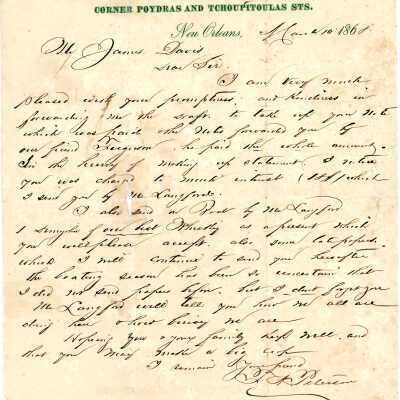 CORNER POYDRAS AND TCHOUPITOULAS STS.
New Orleans, 10 186
Mr James Davis
Dear Sir.
I am very much
pleased with your promptness and kindness in
forwarding me the draft to take up your Note
which was paid the Note forwarded you by
our friend Ferguson he paid the whole amount
In the hurry of making up statement I notice
you was charged to much interest which
I send you by Mr Langford
I also send a Boat by Mr Langford
1 of our best Whisky as a present which
you will please accept. also some late papers
which I will continue to send you hereafter
the boating season has been so uncertain that
I did not send papers before. but I dont forget you
Mr Langford will tell you how we all are
doing here & how busy we are
Hoping you & your family keep well. and
that you may make a big crop
I remain Your friend
Peterson